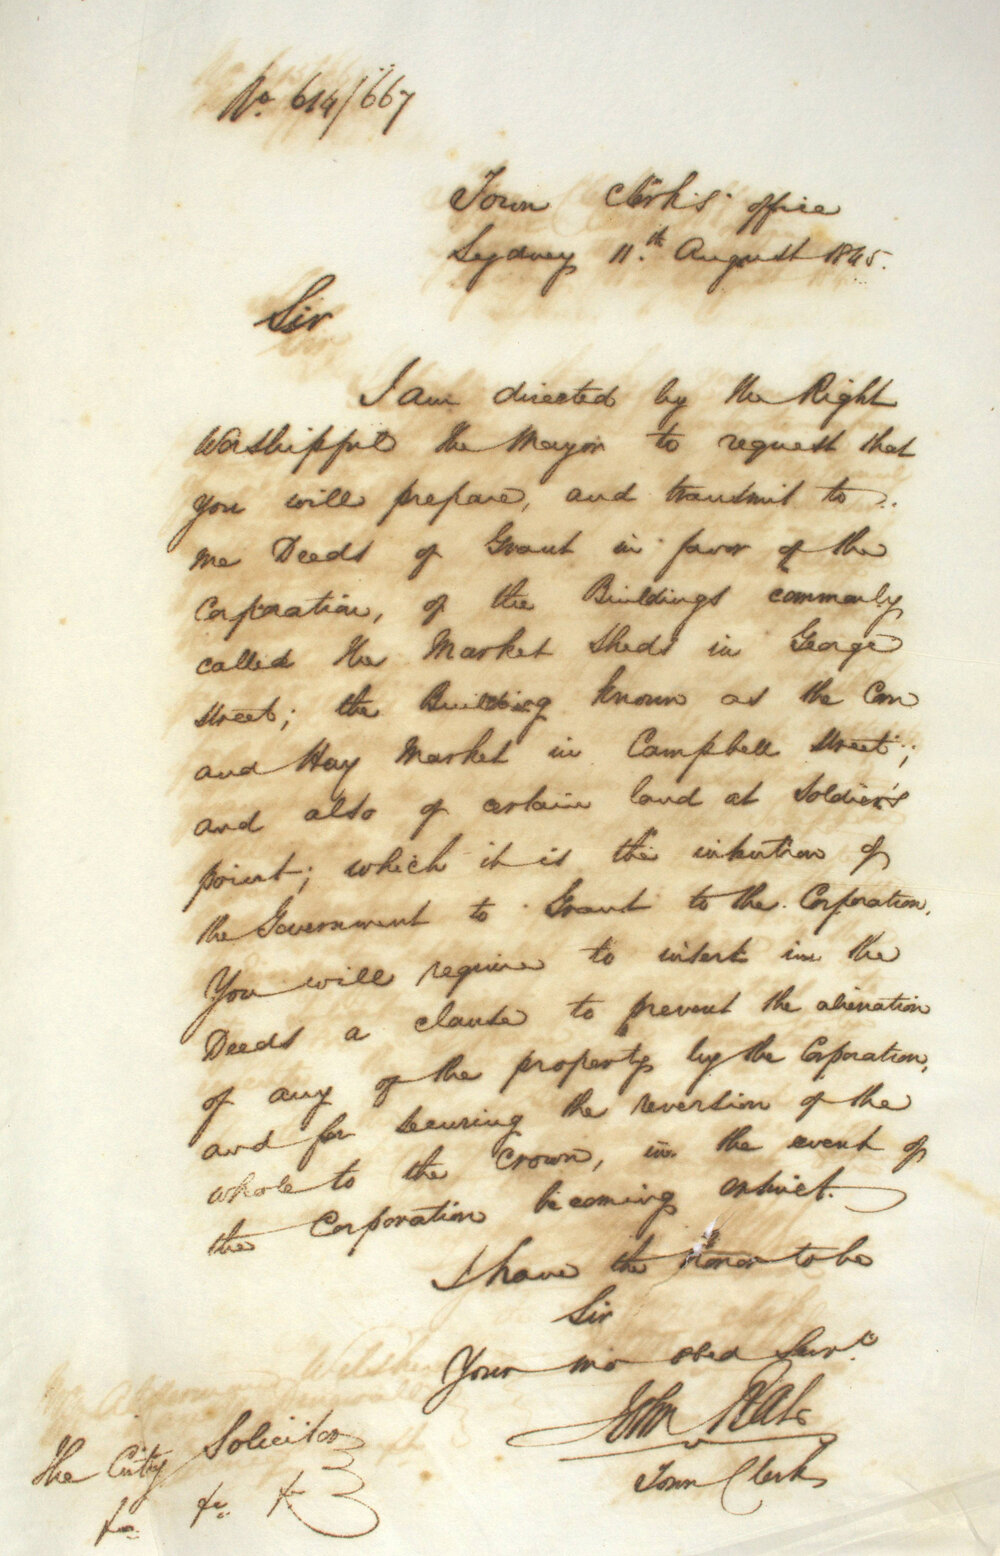 No. 614/667
Town Clerk's office
Sydney 11.th August 1845.
Sir
I am directed by the Right
Worshipful the Mayor to request that
you will prepare, and transmit to
me Deeds of Grant in favor of the
Corporation, of the Buildings commonly
called the Market Sheds in George
Street; the Building known as the Corn
and Hay Market in Campbell Street;
and also of certain land at Soldier's
point; which it is the intention of
the Government to Grant to the Corporation.
You will require to insert in the
Deeds a clause to prevent the alienation
of any of the property by the Corporation,
and for securing the reversion of the
whole to the Crown, in the event of
the Corporation becoming extinct.
I have the honor to be
Sir
Your mo obed Servt.
John
Town Clerk
The City Solicitor
&c &c &c